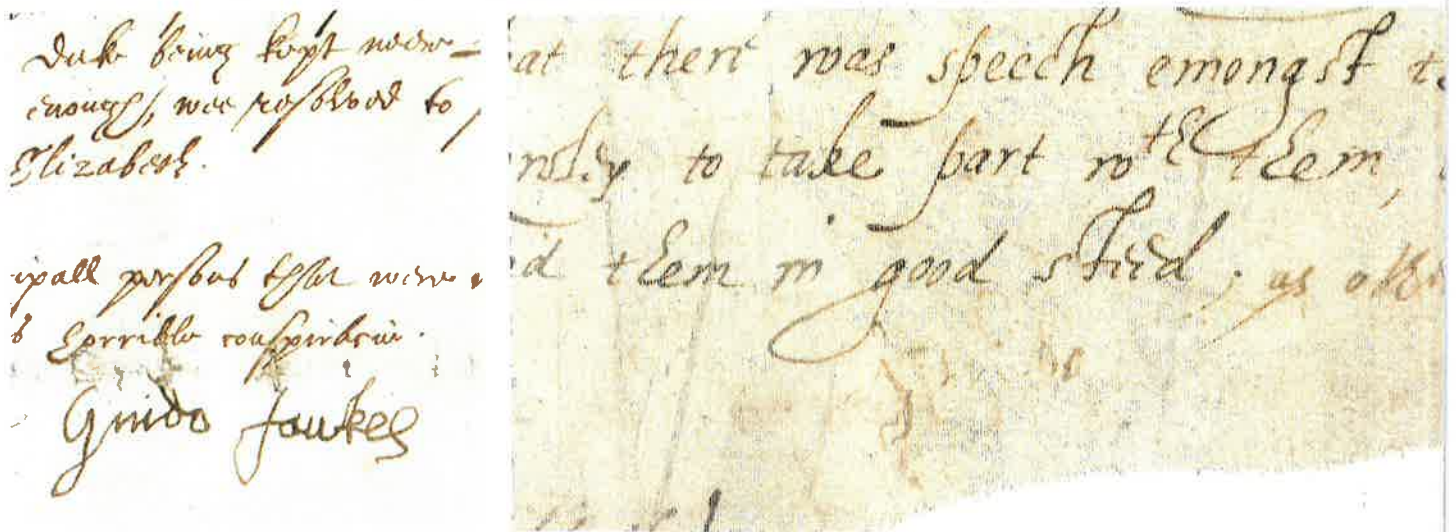 Duke being kept neere
enough, wee resolved to
Elizabeth.
ipall persons that were
horrible conspiracie.
Guido Fawkes
at there was speech emongst
to take part wth them,
them in good steed, as